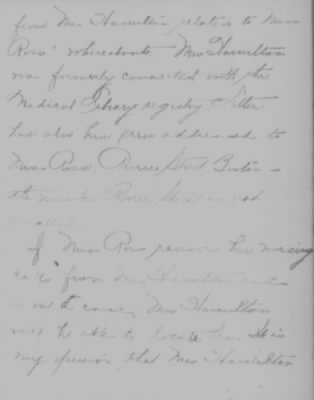 from Mrs Hamilton relates to Miss
Ross' whereabouts Mrs Hamilton
was formerly connected with the
Medical Library registry. Letter
has also been addressed to
Miss Ross Street Boston -
the not

If Miss Ross her nursing
from Mrs Hamilton and
is on the case, Mrs Hamilton
will be able to locate her. It is
my opinion that Mrs Hamilton